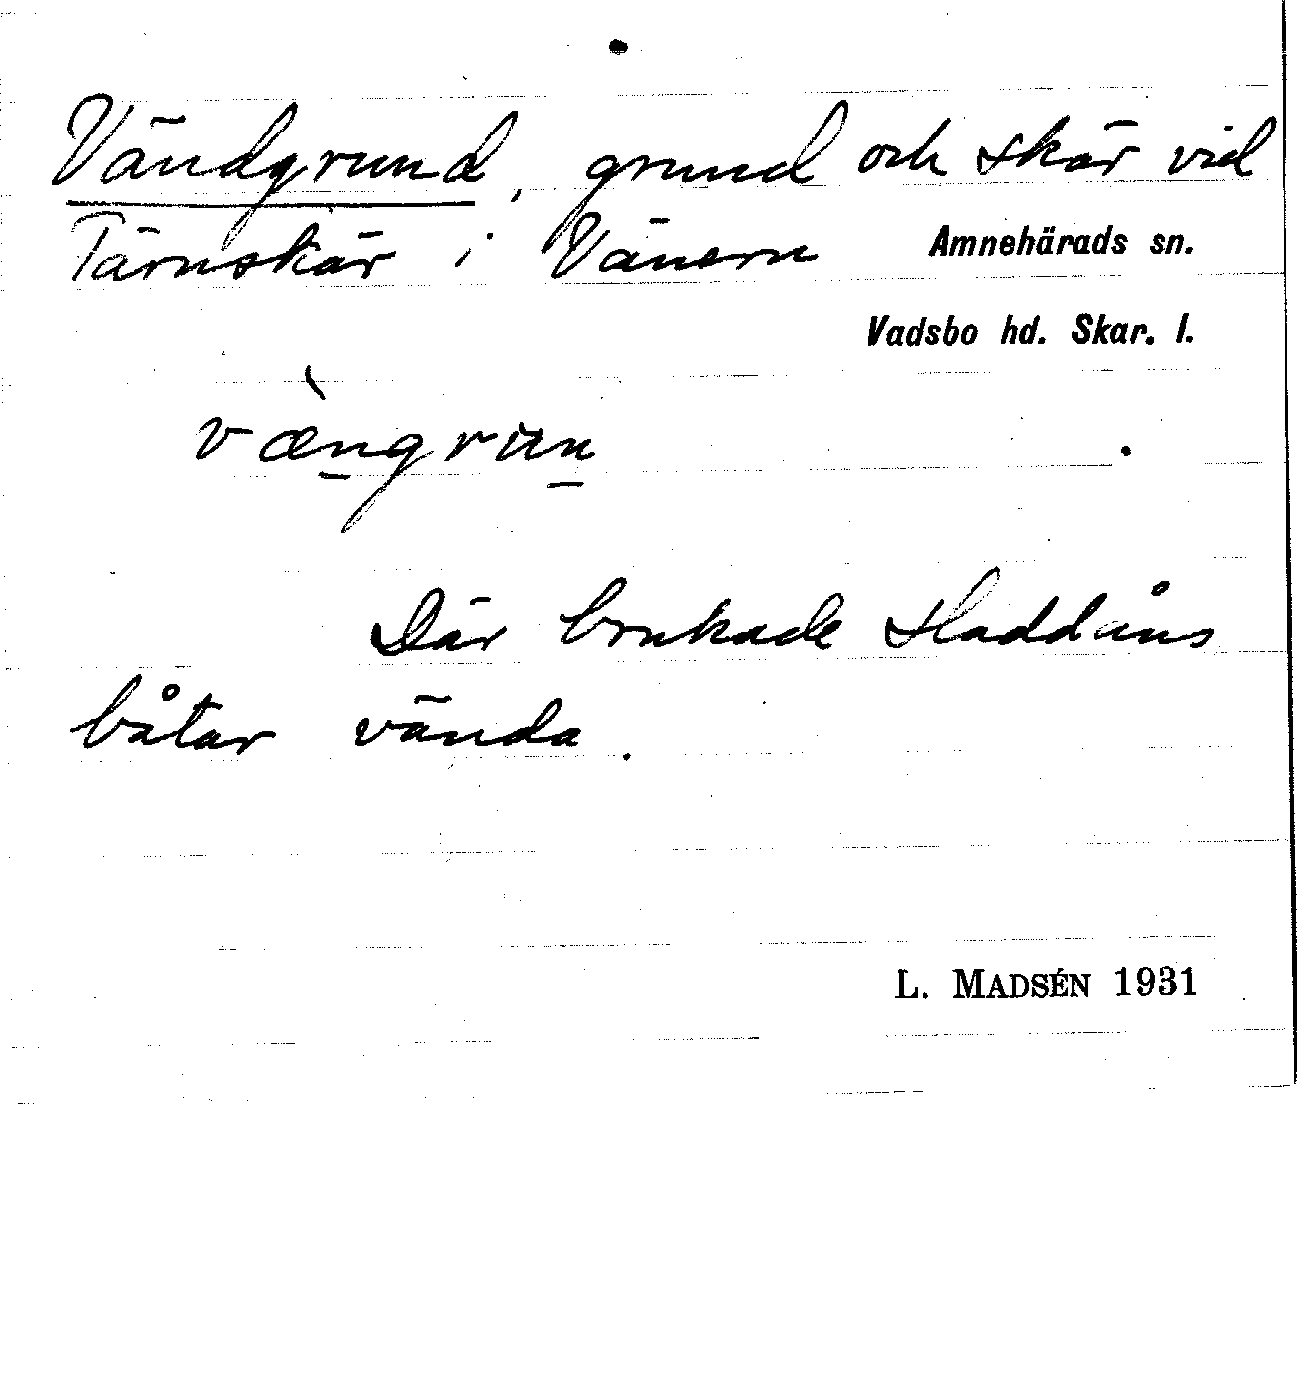 Vändgrund, grund och skär vid
Tärnskär i Vänern Amnehärads sn.
Vadsbo hd. Skar. l.
væ̀n̲grun̲
Där brukade Sladdåns
båtar vända.
L. MADSÉN 1931